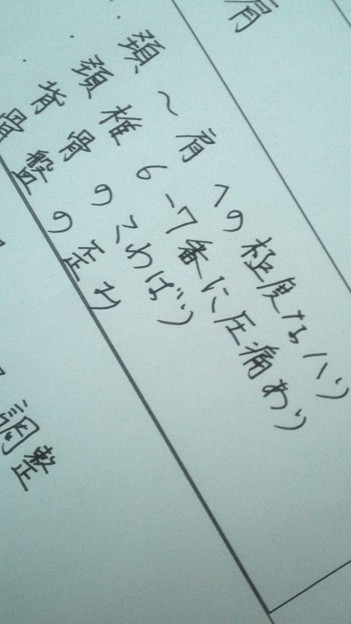 肩
・頚～肩への極度なハリ
・頚椎6-7番に圧痛あり
・背骨のこわばり
骨盤の歪み
調整